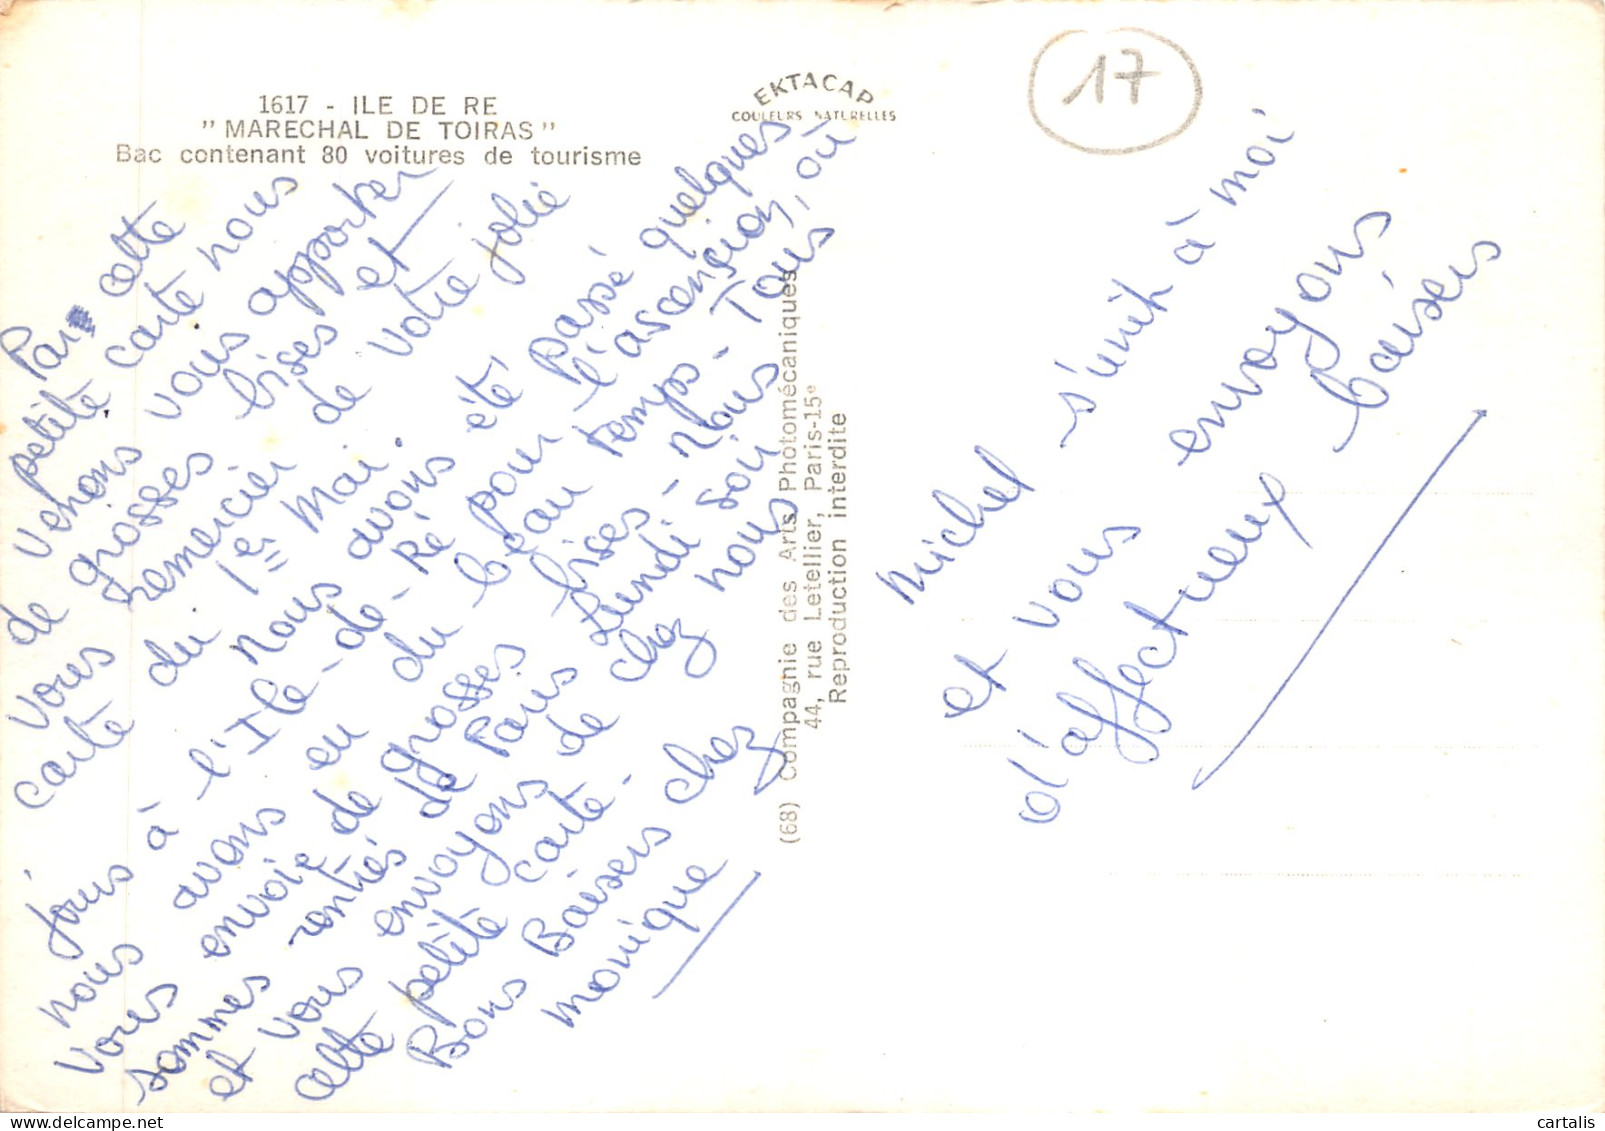 1617 - ILE DE RE
" MARECHAL DE TOIRAS "
Bac contenant 80 voitures de tourisme
EKTACAP
COULEURS NATURELLES
17
Par cette
petite carte nous
venons vous apporter
de grosses bises et
vous remercier de votre jolie
carte du 1er Mai.
nous avons été, passé quelques
jours à l'Ile-de-Ré pour l'ascension, où
nous avons eu du beau temps - Tous
vous envoie de grosses bises - Nous
sommes rentrés de Paris Lundi soir
et vous envoyons de chez nous
cette petite carte -
Bons Baisers chez
Monique
(68) Compagnie des Arts Photomécaniques
44, rue Letellier, Paris-15e
Reproduction interdite
Michel s'unit à moi
et vous envoyons
d'affectueux baisers
cartalis